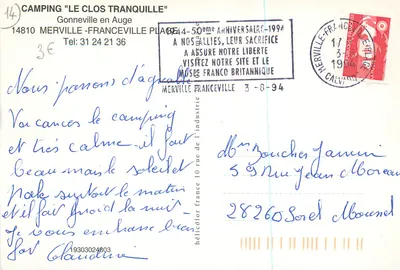 14
CAMPING "LE CLOS TRANQUILLE"
Gonneville en Auge
14810 MERVILLE-FRANCEVILLE PLAGE
Tel: 31 24 21 36
3€
1944-50ème ANNIVERSAIRE-1994
A NOS ALLIES, LEUR SACRIFICE
A ASSURE NOTRE LIBERTE
VISITEZ NOTRE SITE ET LE
MUSEE FRANCO BRITANNIQUE
MERVILLE FRANCEVILLE 3-8-94
MERVILLE-FRANCEVILLE
17
3-8
1994
CALVADOS
Nous passons d'agréable
Vacances le camping
et très calme il fait
beau mais le soleil et
pale surtout le matin
et il fait froid la nuit
Je vous embrasse bien
fort Claudine
19303024803
hélicolor france 10 rue de l'industrie
Mme Boucher Jannin
59 Rue Jean Moreau
28260 Sorel Moussel